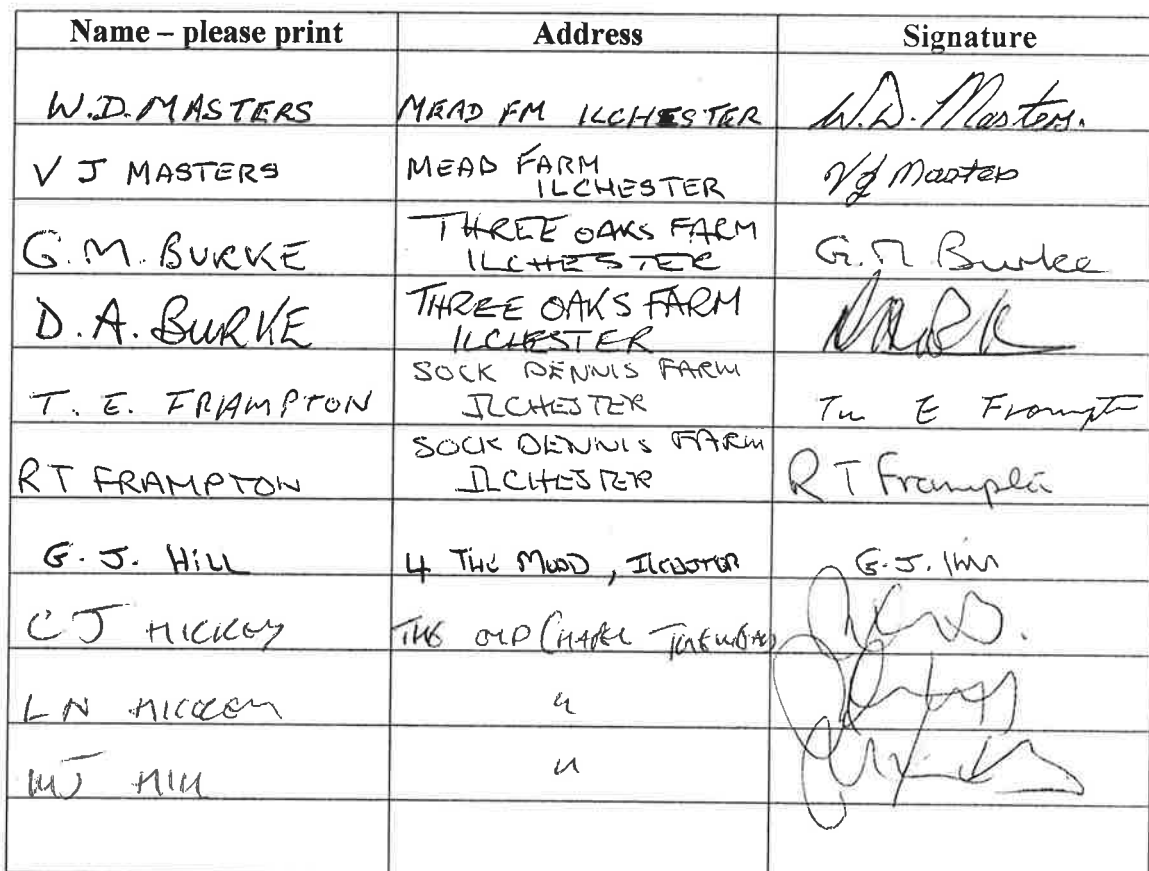 Name – please print Address Signature
W.D. MASTERS MEAD FM ILCHESTER W.D. Masters.
V J MASTERS MEAD FARM
ILCHESTER VJ Masters
G.M. BURKE THREE OAKS FARM
ILCHESTER G.M Burke
D.A. BURKE THREE OAKS FARM
ILCHESTER
T. E. FRAMPTON SOCK DENNIS FARM
ILCHESTER E Frampton
RT FRAMPTON SOCK DENNIS FARM
ILCHESTER R T Frampton
G. J. HILL 4 THE MEAD, ILCHESTER G.J. Hill
C J HICKEY THE OLD CHAPEL
L N HICKEY "
MJ HILL "